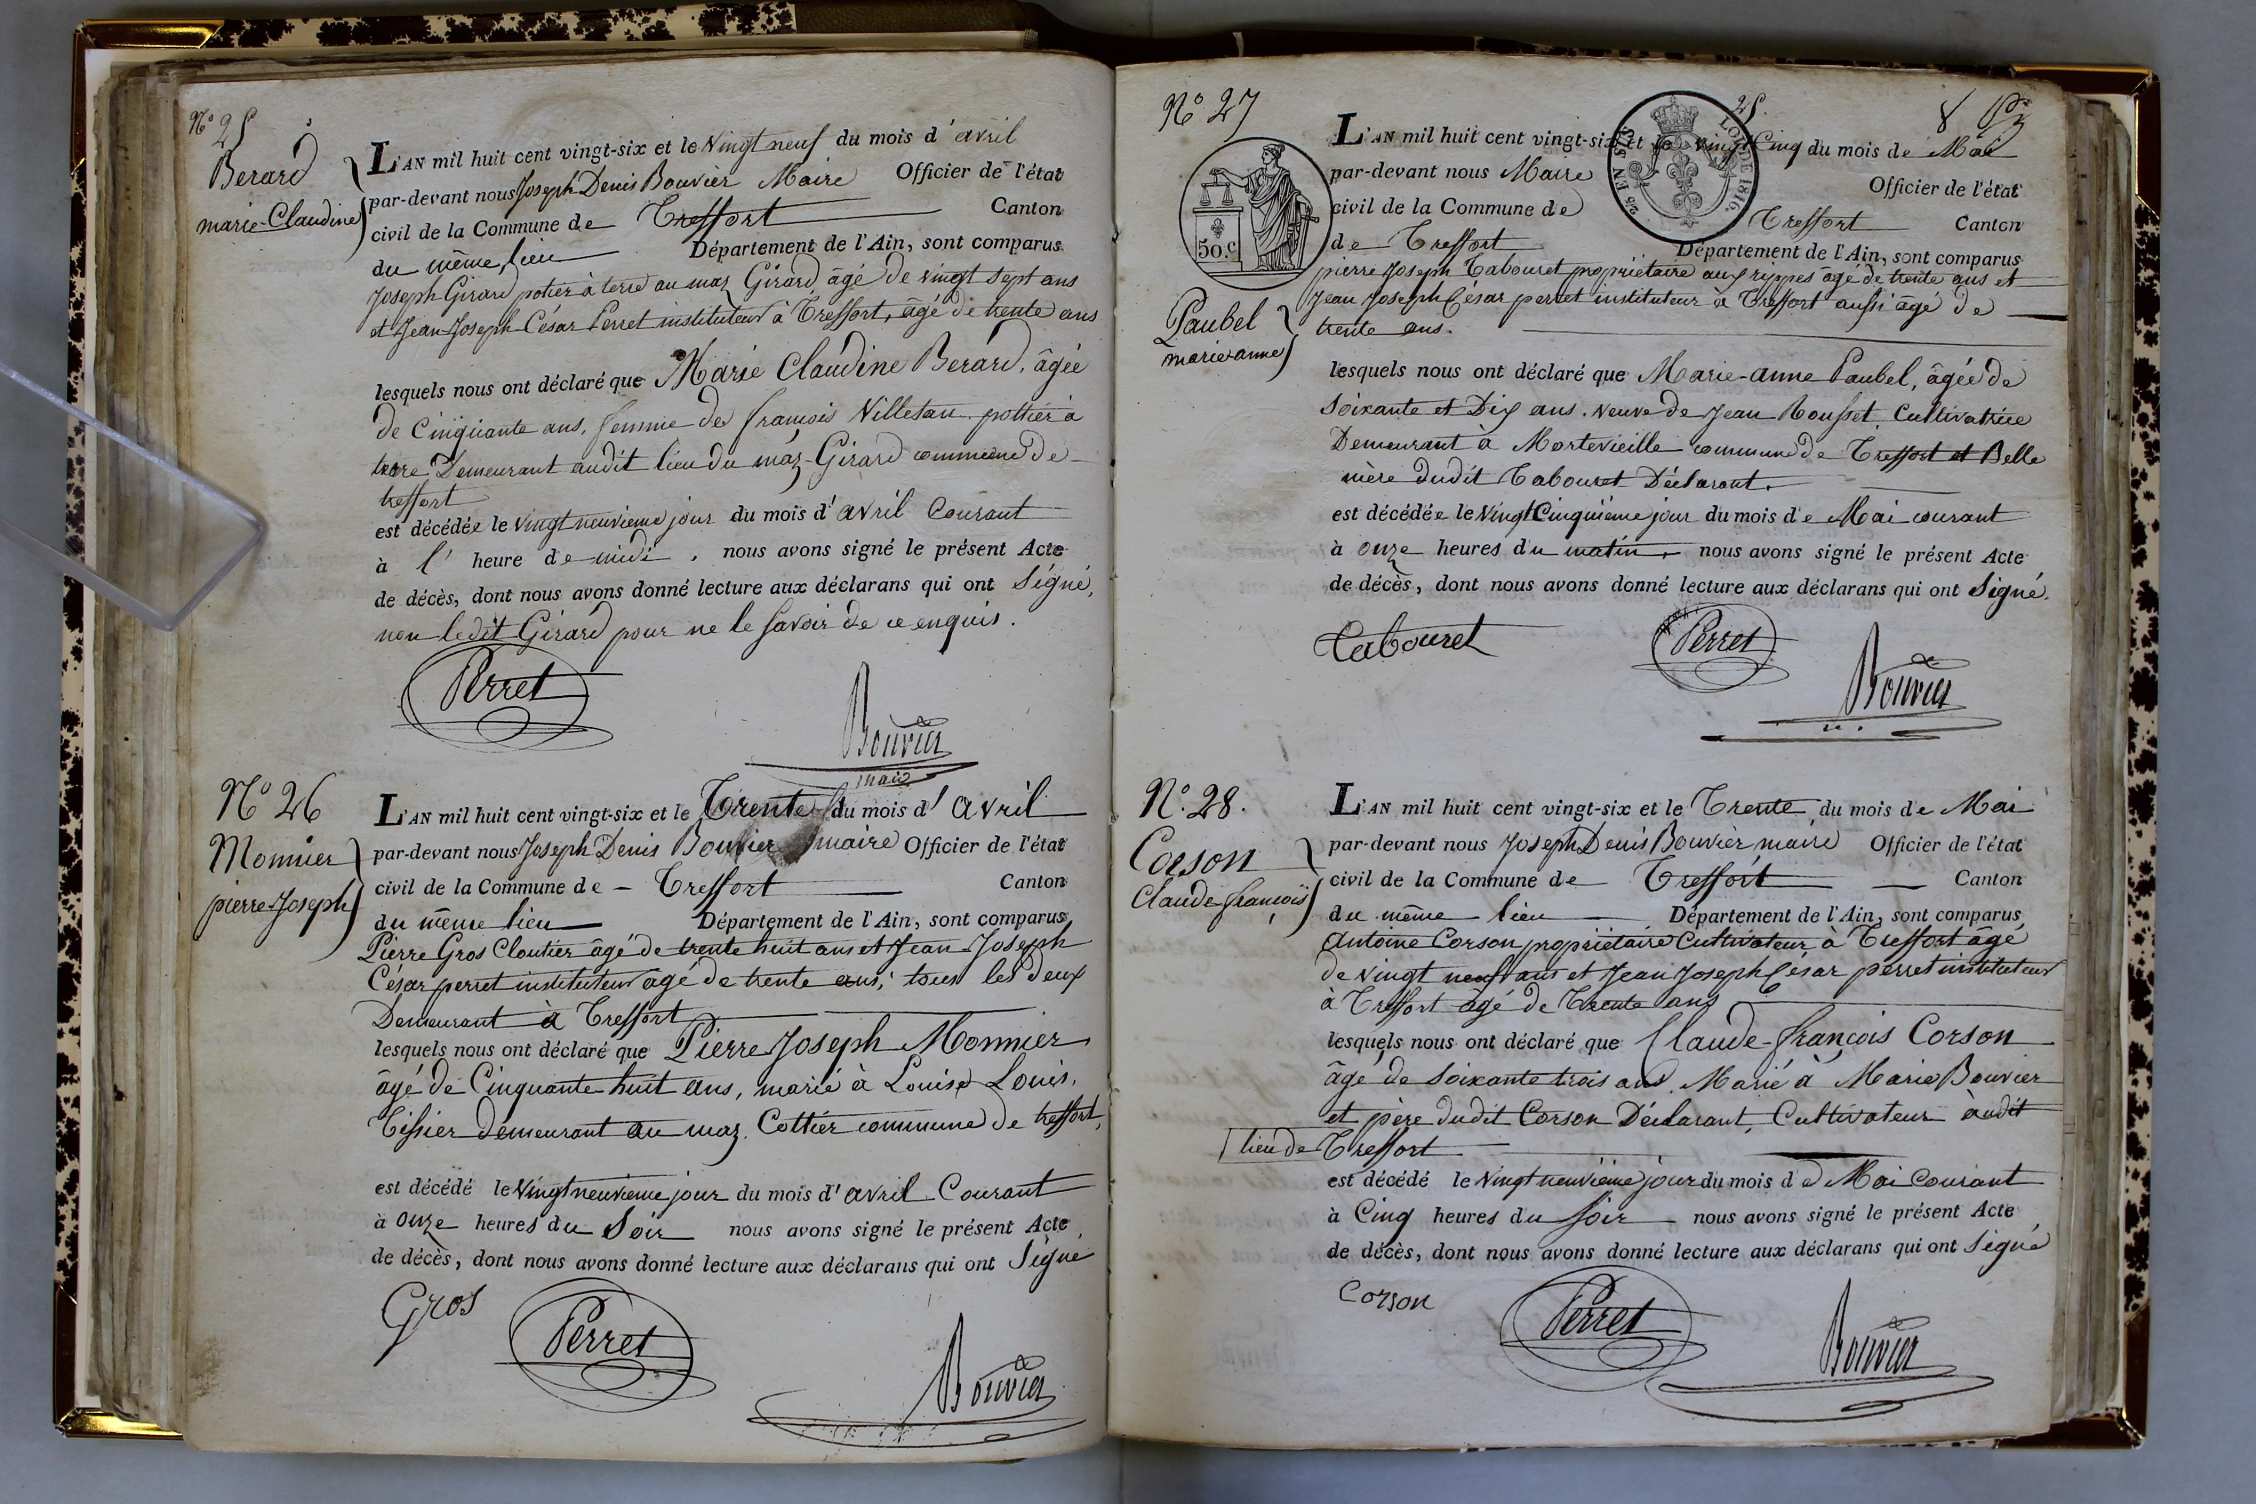 N° 25
Berard
marie-Claudine
L'AN mil huit cent vingt-six et le vingt neuf du mois d'avril
par-devant nous Joseph Denis Bouvier Maire Officier de l'état
civil de la Commune de Treffort Canton
du même lieu Département de l'Ain, sont comparus
Joseph Girard potier à terre au maz Girard, âgé de vingt sept ans
et Jean-Joseph-César Perret instituteur à Treffort, âgé de trente ans
lesquels nous ont déclaré que Marie Claudine Berard, âgée
de Cinquante ans, femme de françois Villetan pottier à
terre Demeurant audit lieu du maz-Girard commune de
treffort
est décédée le vingt neuvieme jour du mois d'avril Courant
à l'heure de midi, nous avons signé le présent Acte
de décès, dont nous avons donné lecture aux déclarans qui ont Signé,
non ledit Girard pour ne le savoir de ce enquis.
Perret
Bouvier
maire
N° 26
Monnier
pierre-Joseph
L'AN mil huit cent vingt-six et le Trente du mois d'avril
par-devant nous Joseph Denis Bouvier maire Officier de l'état
civil de la Commune de - Treffort Canton
du même lieu Département de l'Ain, sont comparus
Pierre Gros Cloutier âgé de trente huit ans et Jean-Joseph
César perret instituteur âgé de trente ans, tous les deux
Demeurant à Treffort
lesquels nous ont déclaré que Pierre Joseph Monnier
âgé de Cinquante huit ans, marié à Louise Louis,
Tissier demeurant au maz Cottier commune de treffort,
est décédé le vingt neuvieme jour du mois d'avril Courant
à onze heures du Soir nous avons signé le présent Acte
de décès, dont nous avons donné lecture aux déclarans qui ont Signé
Gros
Perret
Bouvier
N° 27
25.
8
LOI DE 1816.
50.c
Paubel
marie anne
L'AN mil huit cent vingt-six et le vingt Cinq du mois de Mai
par-devant nous Maire Officier de l'état
civil de la Commune de Treffort Canton
de Treffort Département de l'Ain, sont comparus
pierre Joseph Tabouret propriétaire aux rippes âgé de trente ans et
Jean Joseph César perret instituteur à Treffort aussi âgé de
trente ans.
lesquels nous ont déclaré que Marie-anne Paubel, âgée de
Soixante et Dix ans. veuve de Jean Rousset, Cultivatrice
Demeurant à Mortevieille commune de Treffort et Belle
mère dudit Tabouret Déclarant.
est décédée le vingt Cinquième jour du mois de Mai courant
à onze heures du matin, nous avons signé le présent Acte
de décès, dont nous avons donné lecture aux déclarans qui ont Signé.
Tabouret
Perret
Bouvier
N°. 28.
Corson
Claude françois
L'AN mil huit cent vingt-six et le Trente du mois de Mai
par-devant nous Joseph Denis Bouvier maire Officier de l'état
civil de la Commune de Treffort Canton
du même lieu Département de l'Ain, sont comparus
Antoine Corson propriétaire Cultivateur à Treffort âgé
de vingt neuf ans et Jean Joseph César perret instituteur
à Treffort âgé de Trente ans
lesquels nous ont déclaré que Claude-françois Corson
âgé de soixante trois ans Marié à Marie Bouvier
et père dudit Corson Déclarant, Cultivateur audit
lieu de Treffort
est décédé le vingt neuvième jour du mois de Mai Courant
à Cinq heures du soir nous avons signé le présent Acte
de décès, dont nous avons donné lecture aux déclarans qui ont Signé
Corson
Perret
Bouvier